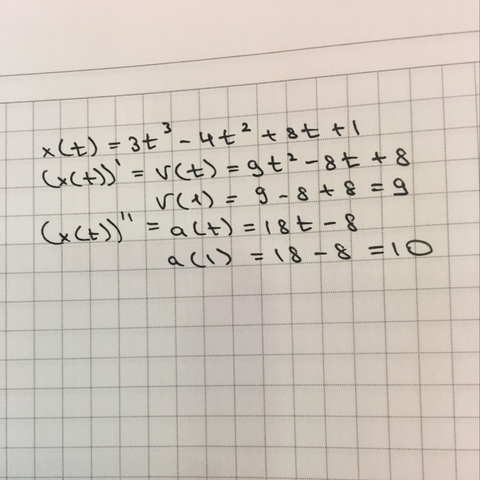 x(t) = 3t³ - 4t² + 8t + 1
(x(t))' = v(t) = 9t² - 8t + 8
v(1) = 9 - 8 + 8 = 9
(x(t))'' = a(t) = 18t - 8
a(1) = 18 - 8 = 10